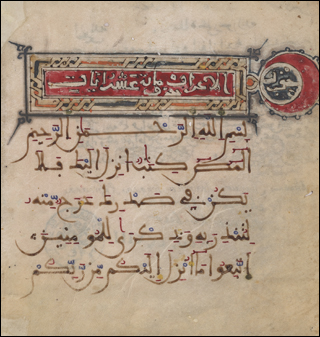 الاعراف عشر ايات
بسم الله الرحمن الرحيم
المص كتب انزل اليك فلا
يكن في صدرك حرج منه
لتنذر به وذكرى للمومنين
اتبعوا ما انزل اليكم من ربكم